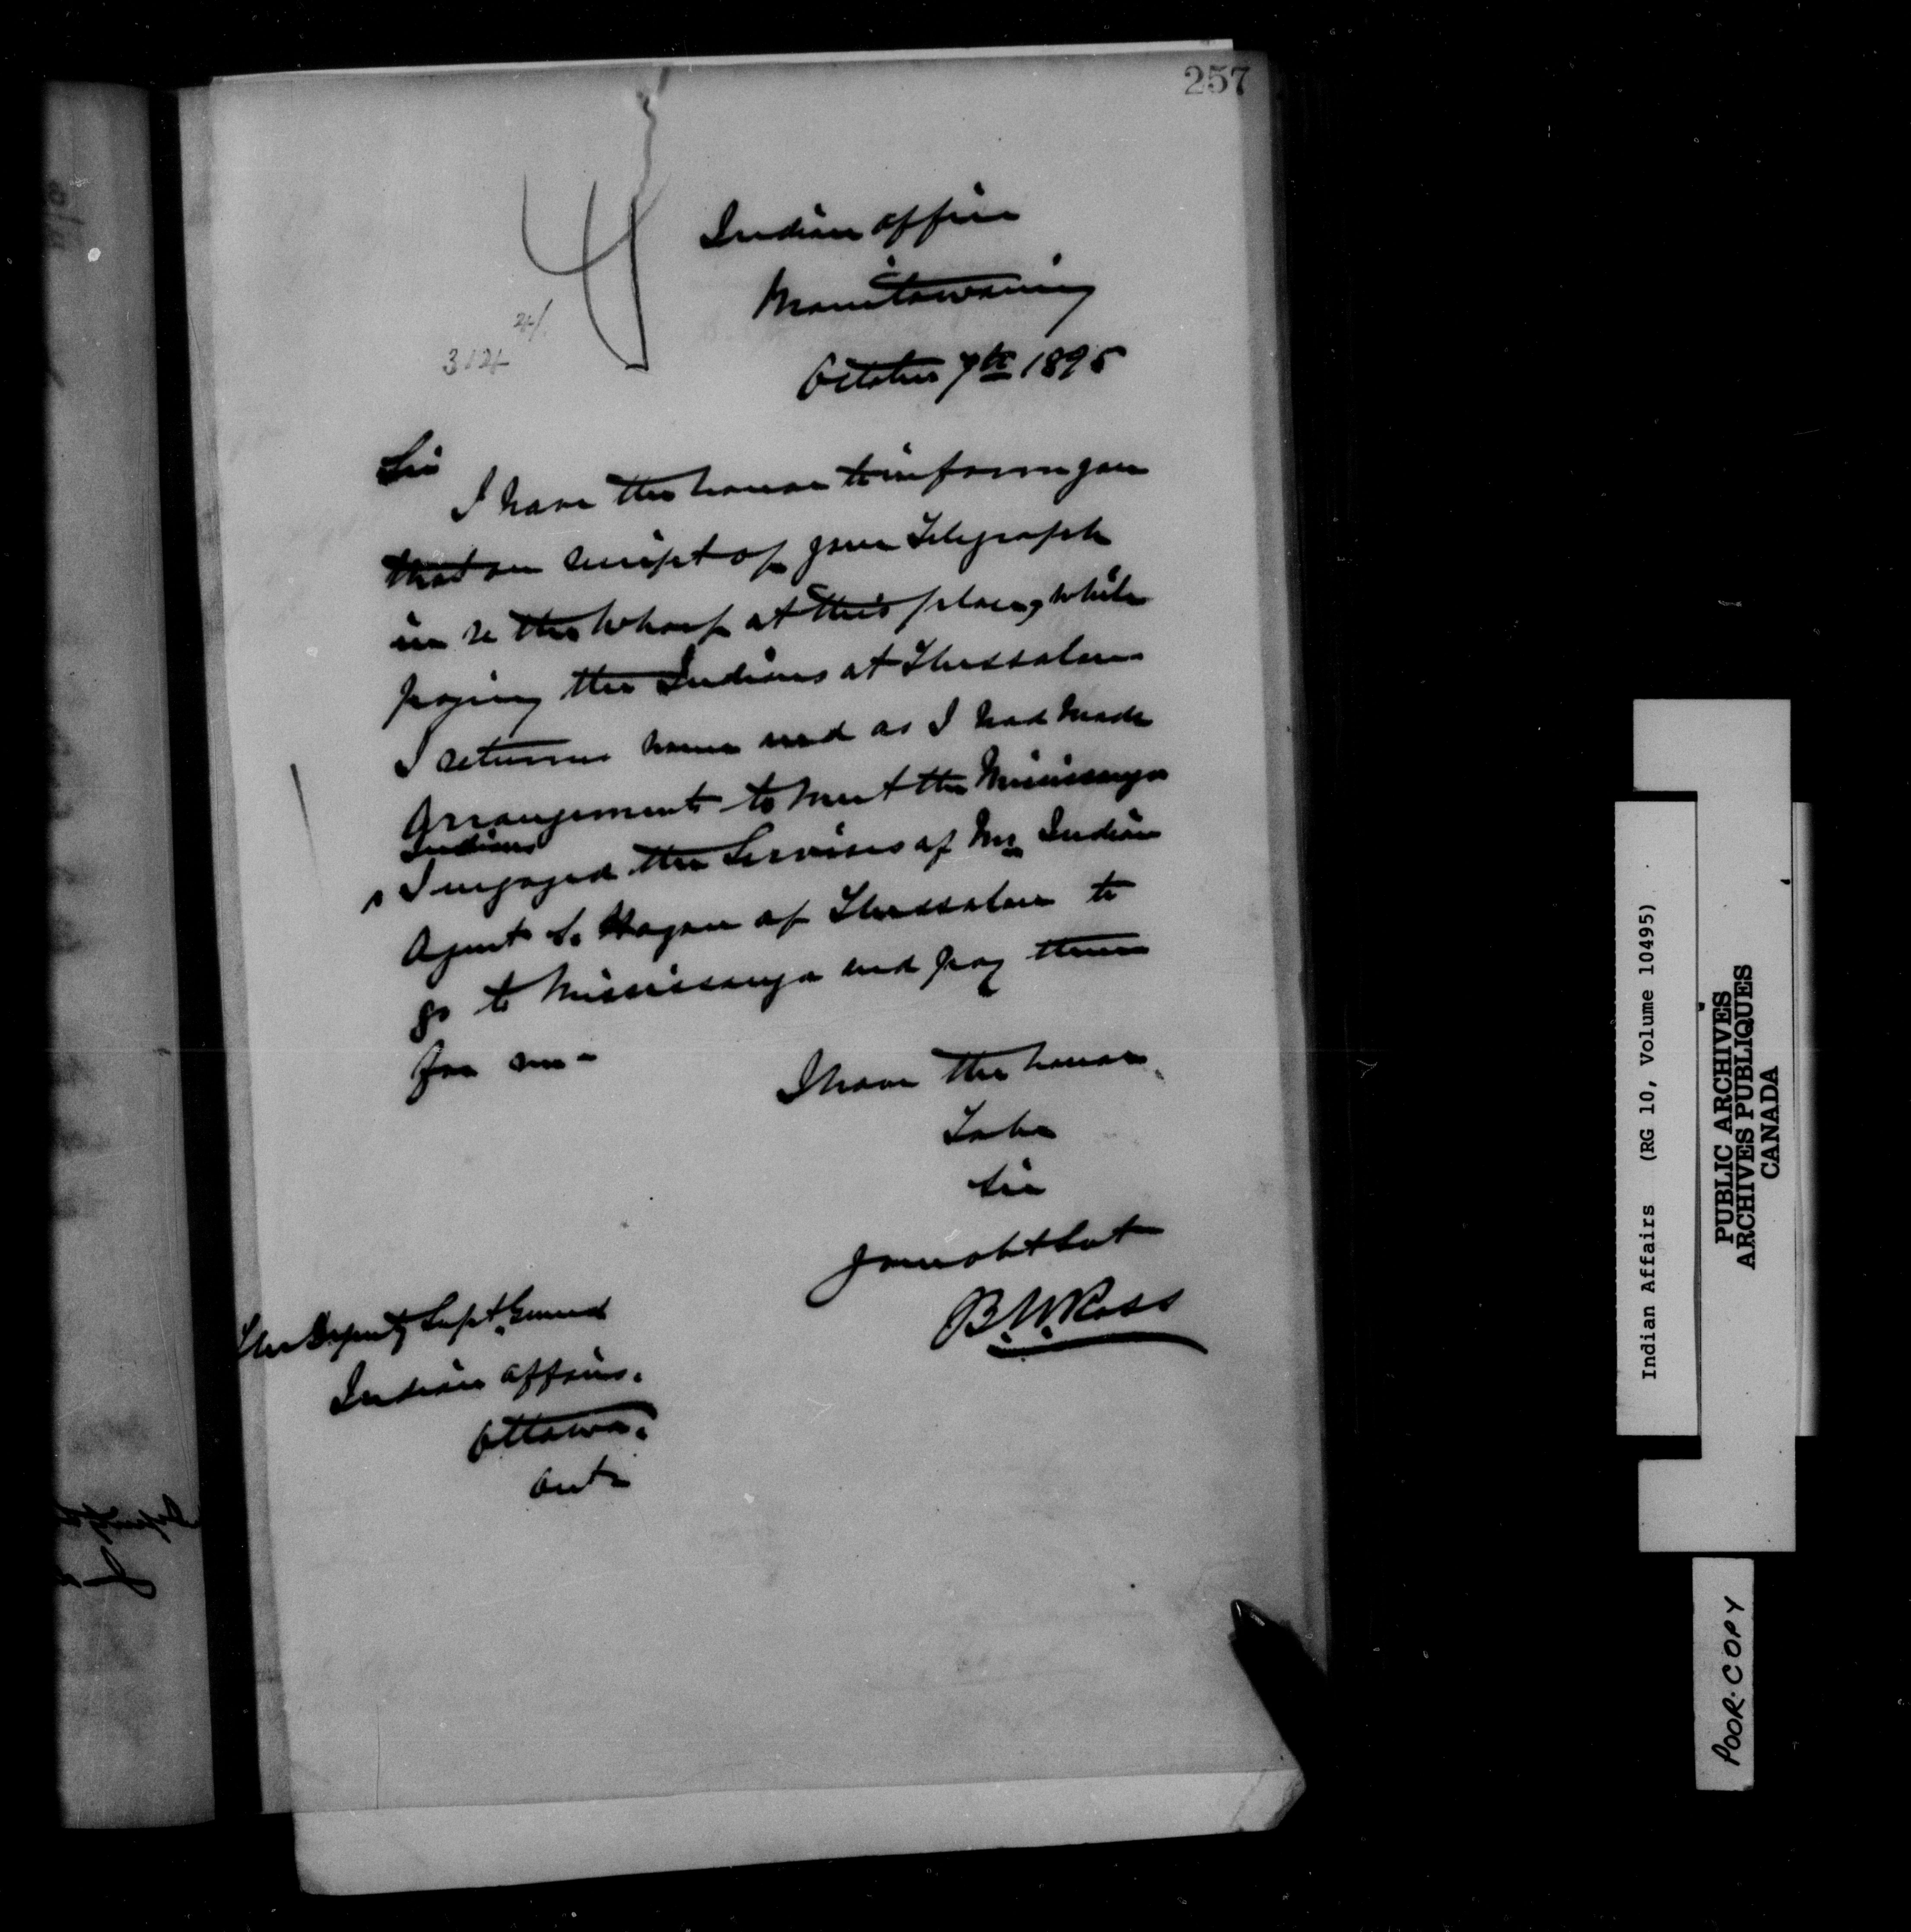 257
4
Indian Office
Manitowaning
October 7th 1895
314
Sir
I have the honor to inform you
that on receipt of your Telegraph
in re the Wharf at this place, while
paying the Indians at Thessalon
I returned home and as I had made
Arrangements to meet the Mississauga
Indians
I engaged the Services of Mr Indian
Agent S. Hagan of Thessalon to
go to Mississauga and pay them
for me -
I have the honor
To be
Sir
Your obt Svt
B. W. Ross
The Deputy Supt General
Indian Affairs.
Ottawa.
Ont
Indian Affairs (RG 10, Volume 10495)
PUBLIC ARCHIVES
ARCHIVES PUBLIQUES
CANADA
POOR COPY